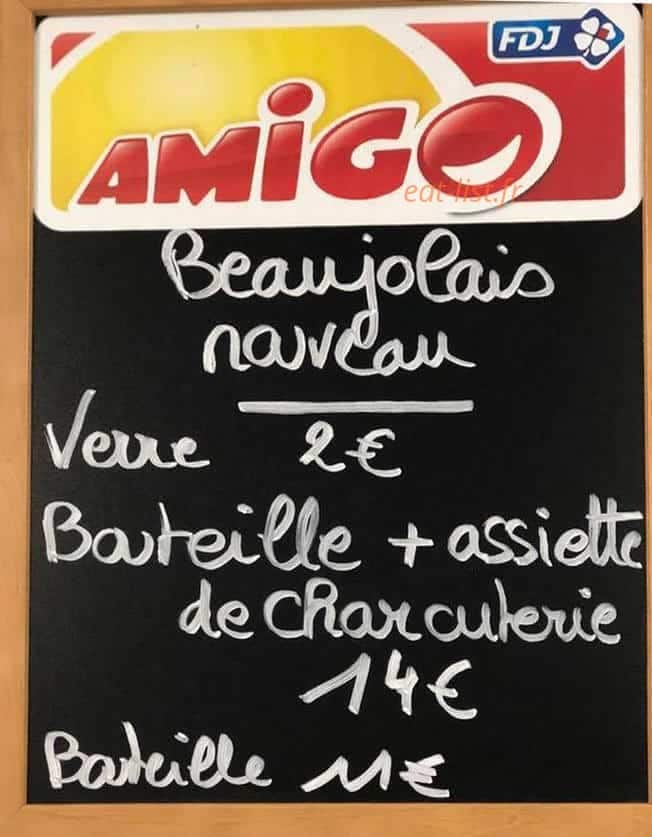 FDJ
AMIGO
eat-list.fr
Beaujolais
nouveau
Verre 2€
Bouteille + assiette
de charcuterie
14€
Bouteille 11€